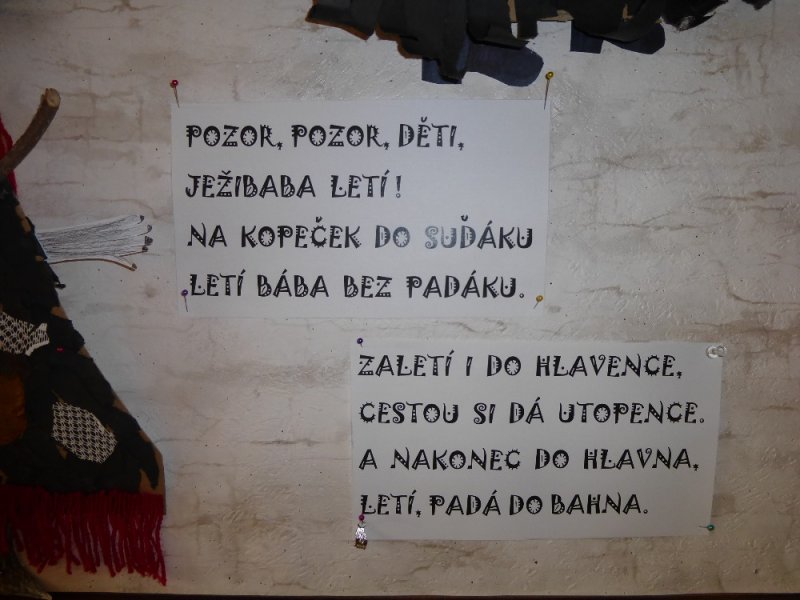 POZOR, POZOR, DĚTI,
JEŽIBABA LETÍ!
NA KOPEČEK DO SUĎÁKU
LETÍ BÁBA BEZ PADÁKU.
ZALETÍ I DO HLAVENCE,
CESTOU SI DÁ UTOPENCE.
A NAKONEC DO HLAVNA,
LETÍ, PADÁ DO BAHNA.